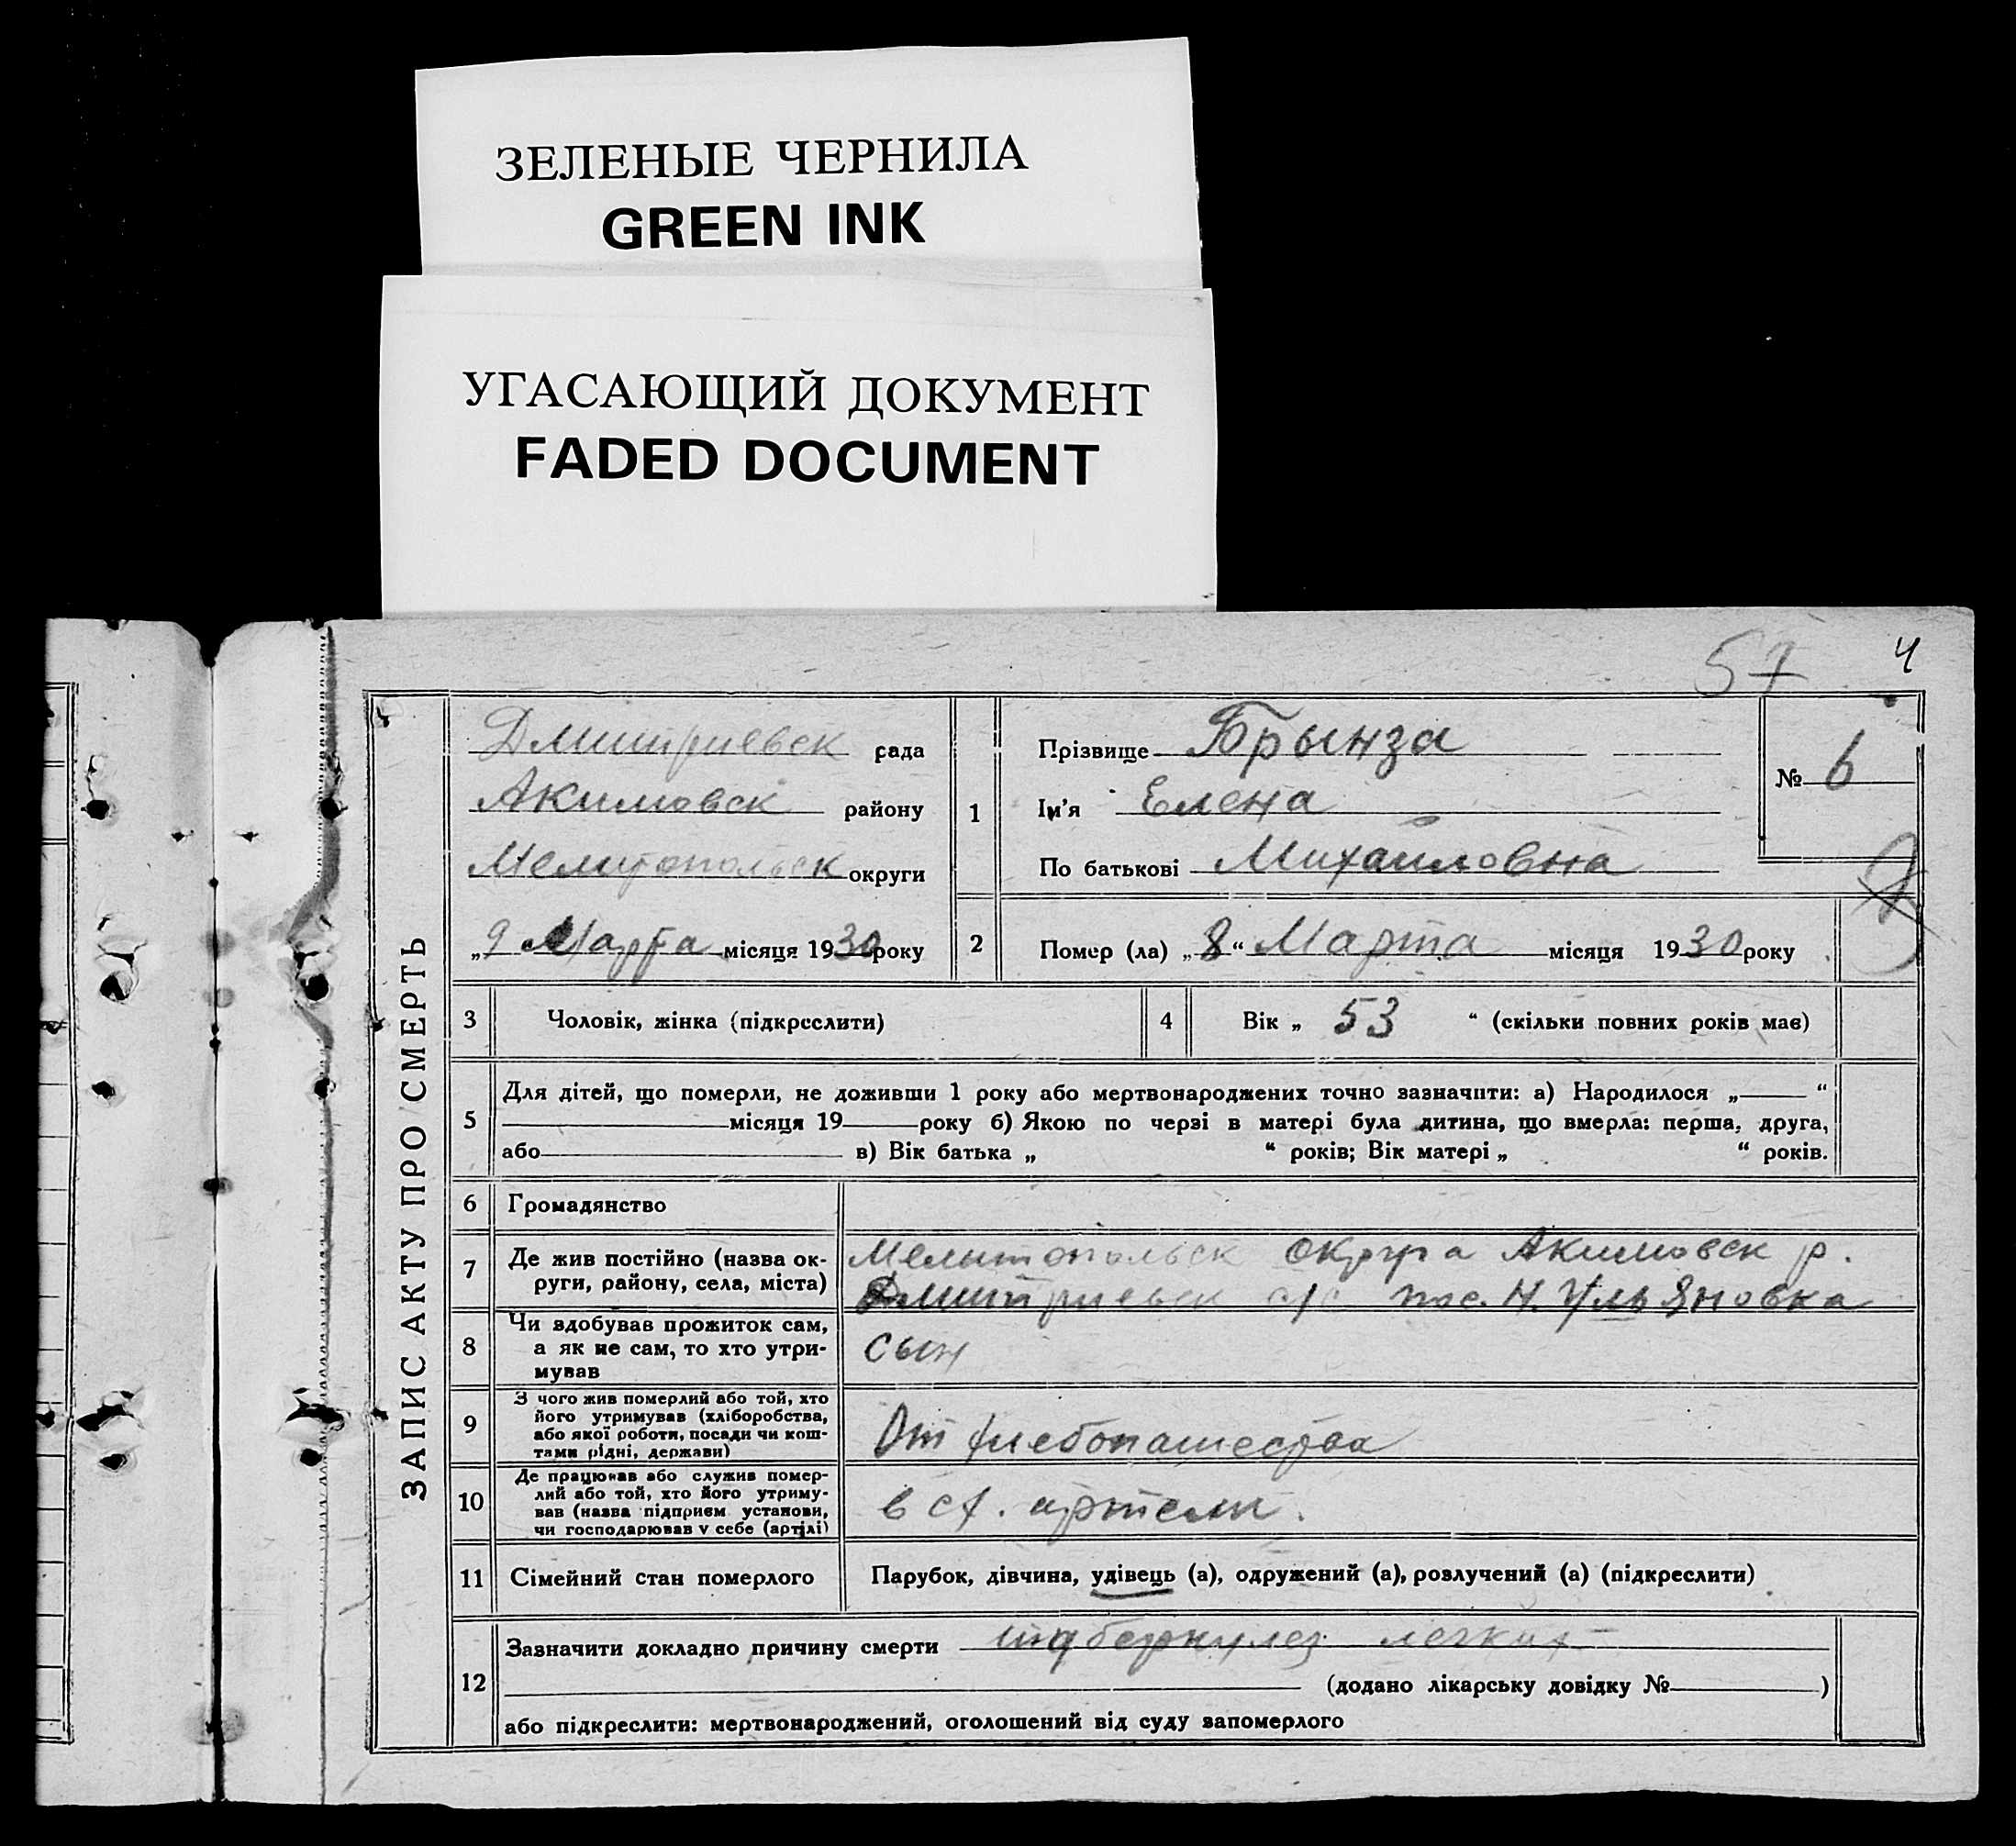 ЗЕЛЕНЫЕ ЧЕРНИЛА
GREEN INK
УГАСАЮЩИЙ ДОКУМЕНТ
FADED DOCUMENT
57 4
ЗАПИС АКТУ ПРО СМЕРТЬ
Дмитриевск рада
Акимовск району
Мелитопольск округи
„9 Марта місяця 1930 року
1 Прізвище Брынза
Ім'я Елена
По батькові Михайловна
№ 6
2 Помер (ла) „8“ Марта місяця 1930 року
3 Чоловік, жінка (підкреслити)
4 Вік „ 53 “ (скільки повних років має)
5 Для дітей, що померли, не доживши 1 року або мертвонароджених точно зазначити: а) Народилося „ “
місяця 19 року б) Якою по черзі в матері була дитина, що вмерла: перша, друга,
або в) Вік батька „ “ років; Вік матері „ “ років.
6 Громадянство
7 Де жив постійно (назва ок-
руги, району, села, міста)
Мелитопольск округа Акимовск р.
Дмитриевск с/с пос. Н. Ульяновка
8 Чи здобував прожиток сам,
а як не сам, то хто утри-
мував
сын
9 З чого жив померлий або той, хто
його утримував (хліборобства,
або якої роботи, посади чи кош-
тами рідні, держави)
От хлебопашества
10 Де працював або служив помер-
лий або той, хто його утриму-
вав (назва підприєм. установи,
чи господарював у себе (артілі)
в сх. артели.
11 Сімейний стан померлого
Парубок, дівчина, удівець (а), одружений (а), розлучений (а) (підкреслити)
12 Зазначити докладно причину смерти туберкулез легких
(додано лікарську довідку № )
або підкреслити: мертвонароджений, оголошений від суду запомерлого